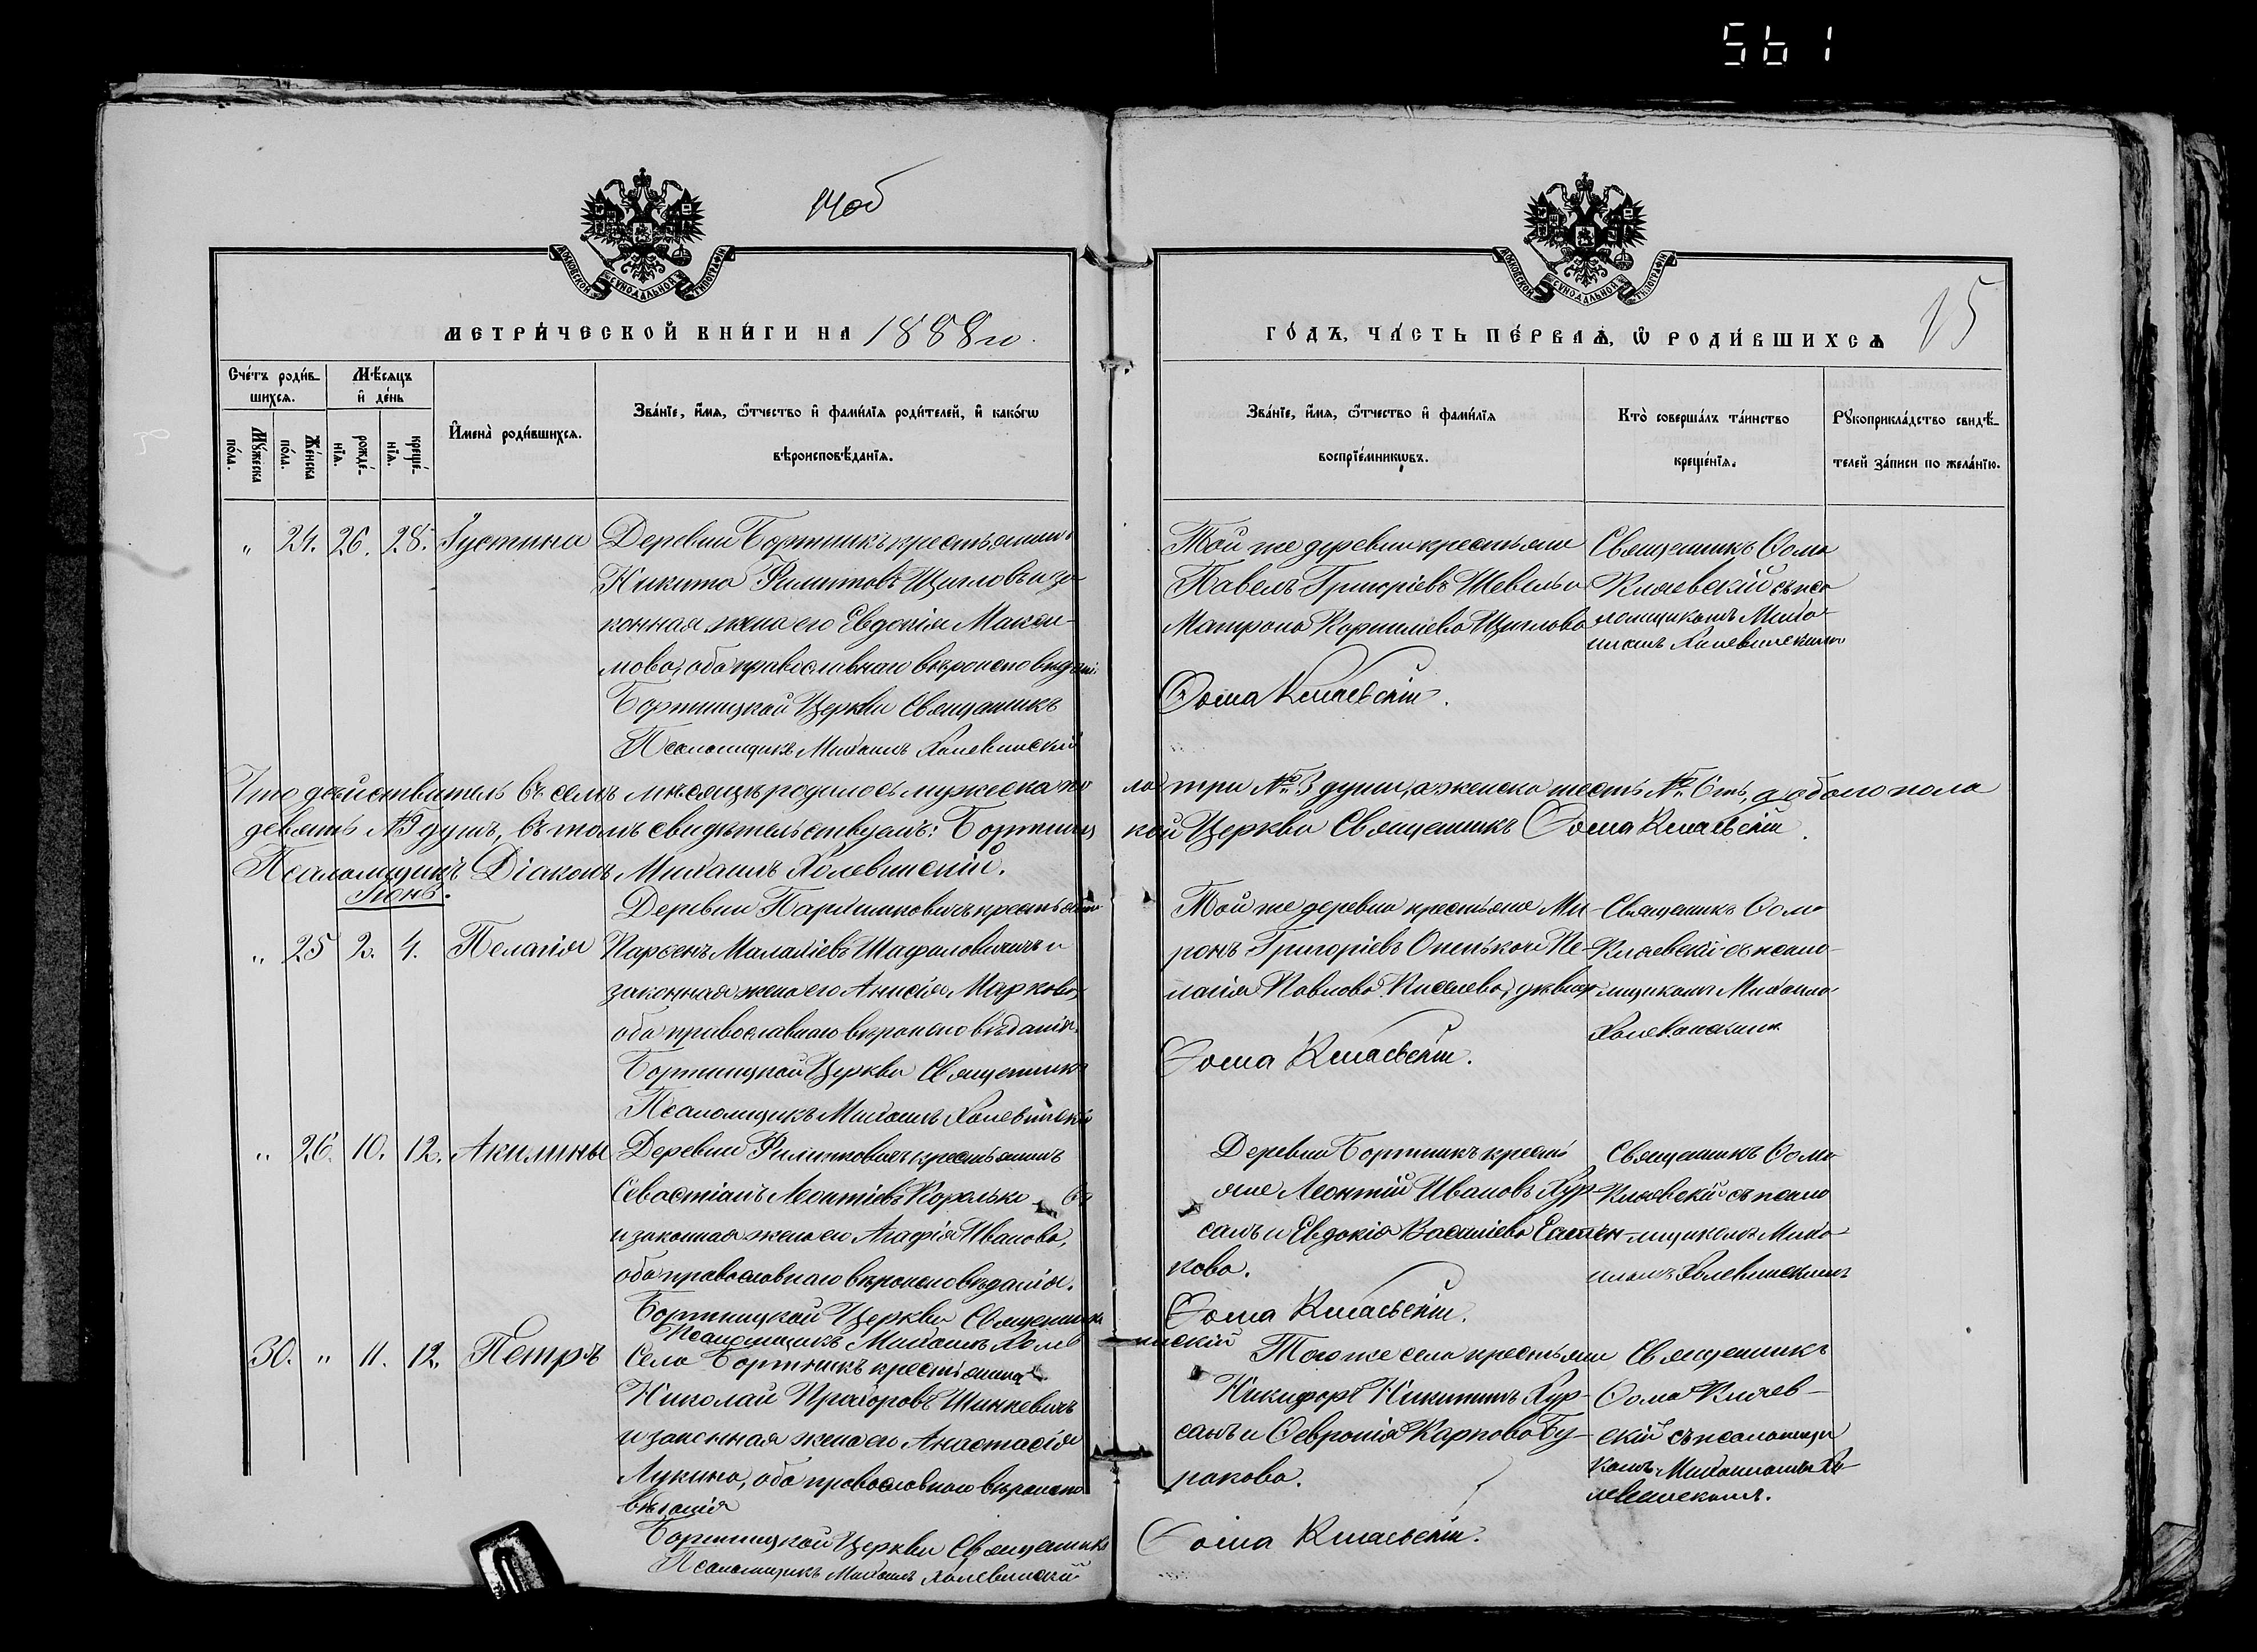 561
14об
МОСКОВСКОЙ СѴНОДАЛЬНОЙ ТИПОГРАФІИ
МОСКОВСКОЙ СѴНОДАЛЬНОЙ ТИПОГРАФІИ
МЕТРИ́ЧЕСКОЙ КНИ́ГИ НА 1888 го
ГО́ДЪ, ЧА́СТЬ ПЕ́РВАѦ, Ѡ РОДИ́ВШИХСѦ
15
Сче́тъ роди́в-
шихсѧ.
Мꙋ́жеска по́ла.
Же́нска по́ла.
Мѣ́сѧцъ
и де́нь
рожде́-
нїѧ.
креще́-
нїѧ.
И҆мена̀ роди́вшихсѧ.
Зва́нїе, и҆́мѧ, ѻ҆́тчество и҆ фами́лїѧ роди́телей, и҆ како́гѡ
вѣроисповѣ́данїѧ.
Зва́нїе, и҆́мѧ, ѻ҆́тчество и҆ фами́лїѧ
воспрїе́мникѡвъ.
Кто̀ соверша́лъ та́инство
креще́нїѧ.
Рꙋкоприкла́дство свидѣ́-
телей за́писи по жела́нїю.
" 24. 26. 28. Іустина
Деревни Бортникъ крестьянинъ
Никита Филиповъ Щигловъ и за-
конная жена его Евдокія Макси-
мова, оба православнаго вѣроисповѣданія.
Бортницкой Церкви Священникъ
Псаломщикъ Михаилъ Холевинскій
Той же деревни крестьяне
Павелъ Григоріевъ Шевель и
Матрона Корнилієва Щиглова
Ѳома Княевскій.
Священникъ Ѳома
Княевскій съ пса-
ломщикомъ Миха-
иломъ Холевинскимъ
Что дѣйствительно въ семъ мѣсяцѣ родилось мужеска по
ла три № 3 души, а женска шесть № 6ть, а обоего пола
девять № 9 душъ, въ томъ свидѣтельствуемъ: Бортниц
кой Церкви Священникъ Ѳома Княевскій.
Псаломщикъ Діаконъ Михаилъ Холевинскій.
Іюнь.
" 25 2. 4. Пелагія
Деревни крестьянинъ
Парѳенъ и
законная жена его Анисія Маркова,
оба православнаго вѣроисповѣданія.
Бортницкой Церкви Священникъ
Псаломщикъ Михаилъ Холевинскій
Той же деревни крестьяне Ми-
ронъ Григоріевъ Опенько и Пе-
лагія Павлова Киселева, дѣвица
Ѳома Княевскій.
Священникъ Ѳома
Княевскій съ псало-
мщикомъ Михаило
Холевинскимъ
" 26. 10. 12. Акилина
Деревни Филиповичъ крестьянинъ
Севастіанъ Леонтіевъ Королько
и законная жена его Агафія Иванова,
оба православнаго вѣроисповѣданія.
Бортницкой Церкви Священникъ
Псаломщикъ Михаилъ Холевинскій
Деревни Бортникъ кресть
яне Леонтій Ивановъ Хур-
санъ и Евдокія Василіева
кова.
Ѳома Княевскій.
Священникъ Ѳома
Княевскій съ псало
мщикомъ Миха-
иломъ Холевинскимъ
30. " 11. 12. Петръ
Села Бортникъ крестьянинъ
Николай Прохоровъ Шинкевичъ
и законная жена его Анастасія
Лукина, оба православнаго вѣроиспо
вѣданія
Бортницкой Церкви Священникъ
Псаломщикъ Михаилъ Холевинскій
Того же села крестьяне
Никифоръ Никитинъ Хур-
санъ и Ѳевронія Карпова Бу-
ракова.
Ѳома Княевскій.
Священникъ
Ѳома Княев-
скій съ псаломщи
комъ Михаиломъ Хо-
левинскимъ.